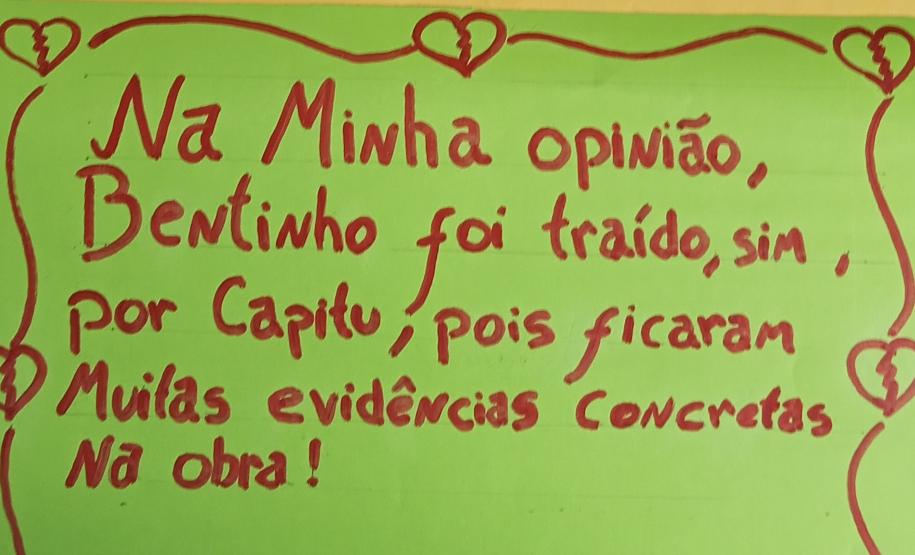 Na Minha opinião,
Bentinho foi traído, sim,
por Capitu, pois ficaram
Muitas evidências concretas
Na obra!